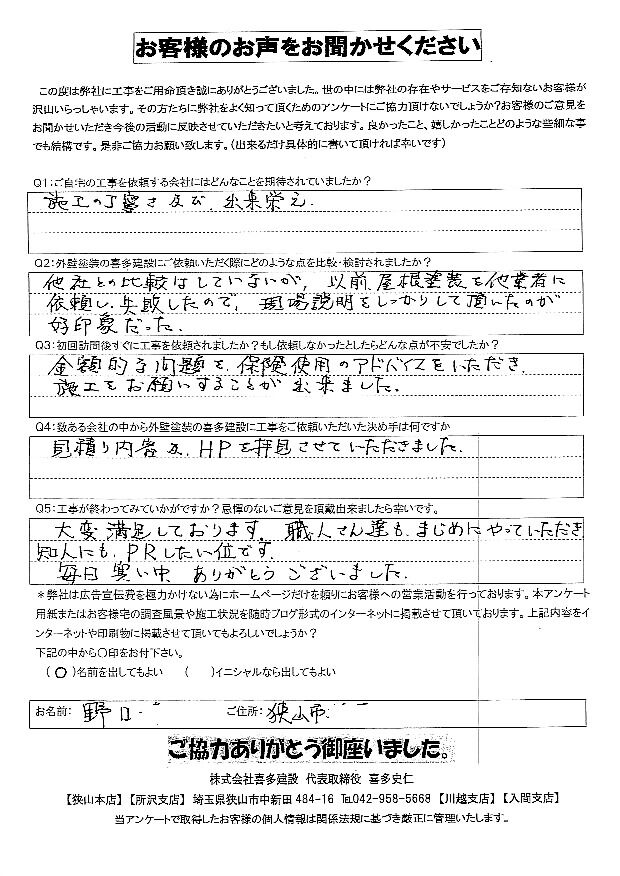 お客様のお声をお聞かせください
この度は弊社に工事をご用命頂き誠にありがとうございました。世の中には弊社の存在やサービスをご存知ないお客様が
沢山いらっしゃいます。その方たちに弊社をよく知って頂くためのアンケートにご協力頂けないでしょうか?お客様のご意見を
お聞かせいただき今後の活動に反映させていただきたいと考えております。良かったこと、嬉しかったことどのような些細な事
でも結構です。是非ご協力お願い致します。(出来るだけ具体的に書いて頂ければ幸いです)
Q1:ご自宅の工事を依頼する会社にはどんなことを期待されていましたか?
施工の丁寧さ及び、出来栄え.
Q2:外壁塗装の喜多建設にご依頼いただく際にどのような点を比較・検討されましたか?
他社との比較はしていないが, 以前、屋根塗装を他業者に
依頼し、失敗したので, 現場説明をしっかりして頂いたのが
好印象だった.
Q3:初回訪問後すぐに工事を依頼されましたか?もし依頼しなかったとしたらどんな点が不安でしたか?
金額的な問題を、保険使用のアドバイスをいただき
施工をお願いすることが出来ました.
Q4:数ある会社の中から外壁塗装の喜多建設に工事をご依頼いただいた決め手は何ですか
見積り内容及、HPを拝見させていただきました.
Q5:工事が終わってみていかがですか?忌憚のないご意見を頂戴出来ましたら幸いです。
大変満足しております. 職人さん達も、まじめにやっていただき
知人にも、PRしたい位です.
毎日寒い中 ありがとうございました.
*弊社は広告宣伝費を極力かけない為にホームページだけを頼りにお客様への営業活動を行っております。本アンケート
用紙またはお客様宅の調査風景や施工状況を随時ブログ形式のインターネットに掲載させて頂いております。上記内容をイ
ンターネットや印刷物に掲載させて頂いてもよろしいでしょうか?
下記の中から〇印をお付下さい。
(〇)名前を出してもよい ( )イニシャルなら出してもよい
お名前: 野口 ご住所: 狭山市
ご協力ありがとう御座いました。
株式会社喜多建設 代表取締役 喜多史仁
【狭山本店】【所沢支店】 埼玉県狭山市中新田484-16 ℡042-958-5668 【川越支店】【入間支店】
当アンケートで取得したお客様の個人情報は関係法規に基づき厳正に管理いたします。